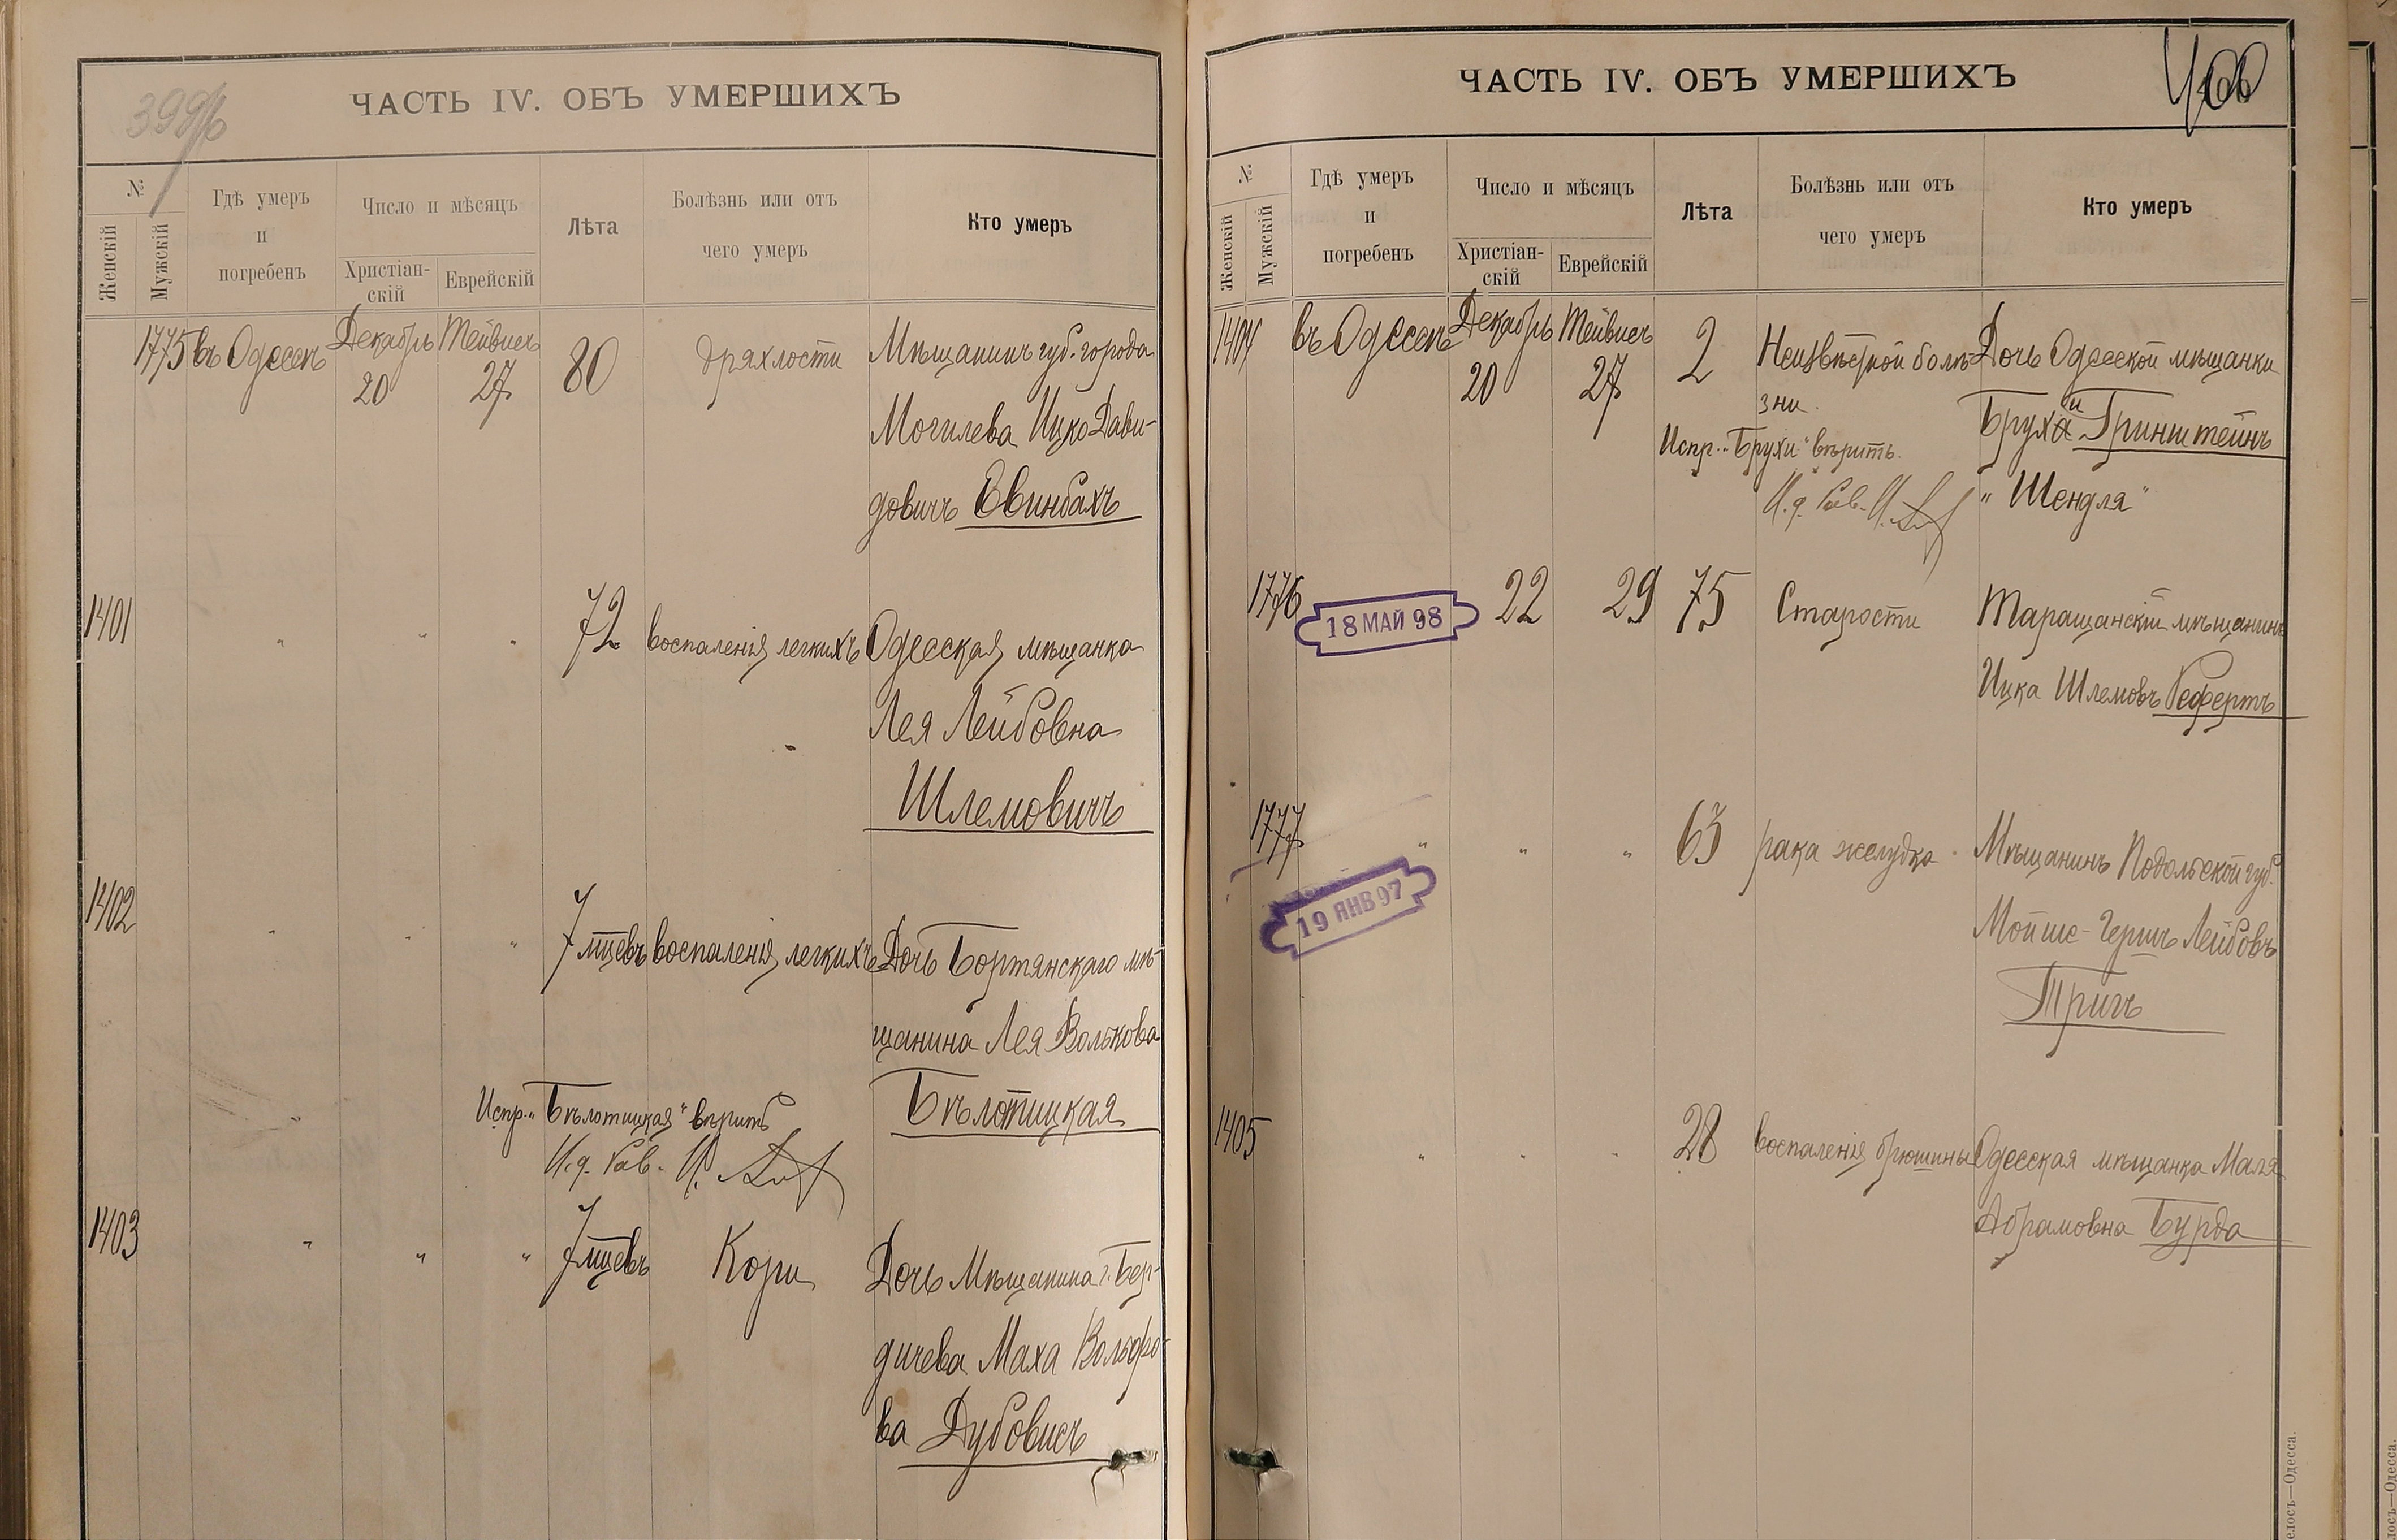 399об
ЧАСТЬ IV. ОБЪ УМЕРШИХЪ
№
Женскій
Мужскій
Гдѣ умеръ
и
погребенъ
Число и мѣсяцъ
Христіан-
скій
Еврейскій
Лѣта
Болѣзнь или отъ
чего умеръ
Кто умеръ
1775 въ Одессѣ Декабрь 20 Тейвисъ 27 80 дряхлости Мѣщанинъ губ. города
Могилева Ицко Дави-
довичъ Евинбахъ
1401 " " " 72 воспаленія легкихъ Одесская мѣщанка
Лея Лейбовна
Шлемовичъ
1402 " " " 7 мцевъ воспаленія легкихъ Дочь Бортянскаго мѣ-
щанина Лея Волькова
Бѣлотицкая
Испр. "Бѣлотицкая" вѣрить
И. д. Рав. И.
1403 " " " 7 мцевъ Кори Дочь Мѣщанина г. Бер-
дичева Маха Вольфо-
ва Дубовисъ
400
ЧАСТЬ IV. ОБЪ УМЕРШИХЪ
№
Женскій
Мужскій
Гдѣ умеръ
и
погребенъ
Число и мѣсяцъ
Христіан-
скій
Еврейскій
Лѣта
Болѣзнь или отъ
чего умеръ
Кто умеръ
1404 въ Одессѣ Декабрь 20 Тейвисъ 27 2 Неизвѣстной болѣ- Дочь Одесской мѣщанки
зни. Брухи Гринштейнъ
Испр. "Брухи" вѣрить.
И. д. Рав. И.
"Шендля"
1776 22 29 75 Старости Таращанскій мѣщанинъ
18 МАЙ 98
Ицка Шлемовъ Гефертъ
1777 " " " 63 рака желудка Мѣщанинъ Подольской губ.
19 ЯНВ 97
Мойше-Гершъ Лейбовъ
Тригъ
1405 " " " 28 воспаленія брюшины Одесская мѣщанка Маля
Абрамовна Бурда